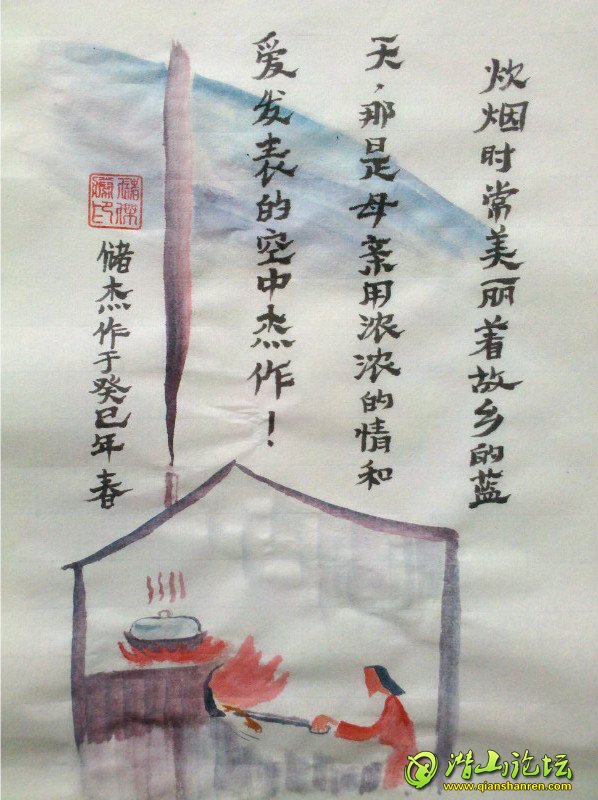 炊烟时常美丽着故乡的蓝
天，那是母亲用浓浓的情和
爱发表的空中杰作！
储杰作于癸巳年春
潜山论坛
www.qianshanren.com